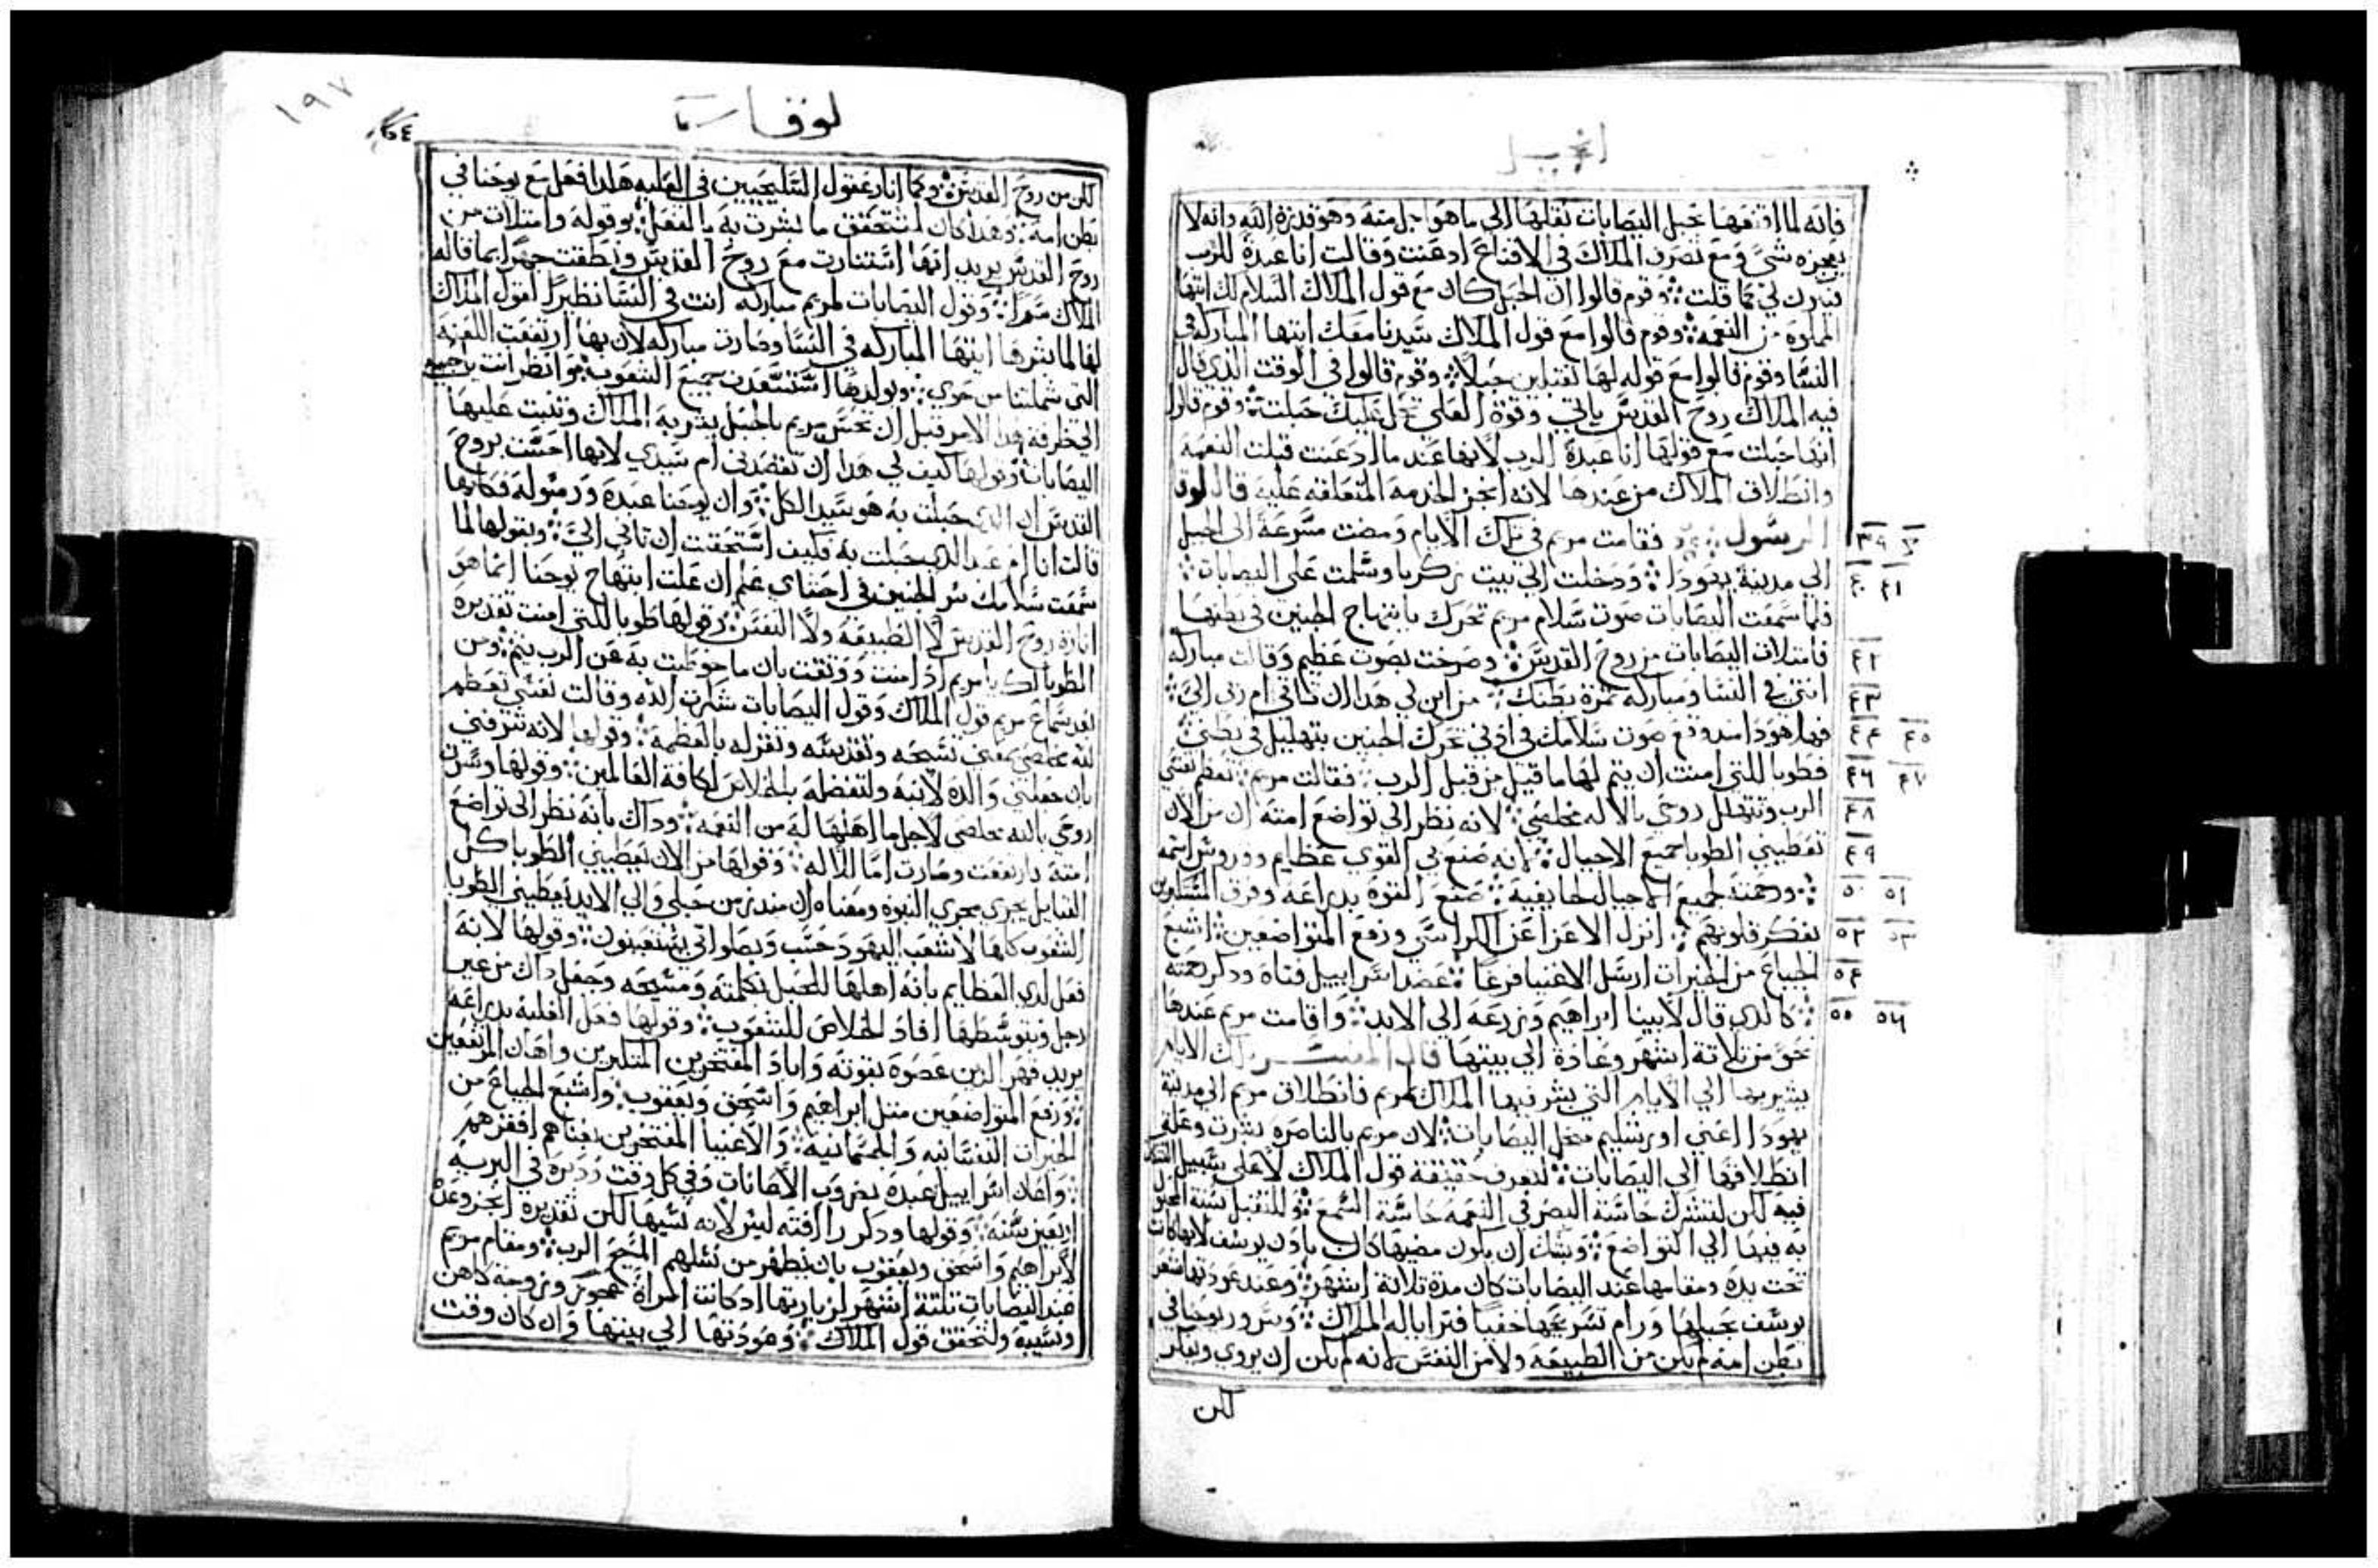 انجيل
فانه لما اقنعها بحبل اليصابات نقلها الى ما هو اجل منه وهو قدرة الله وانه لا
يعجزه شي ومع تصرف الملاك في الاقناع ادعنت وقالت انا عبدة للرب
فيكون لي كما قلت وقوم قالوا ان الحبل كان مع قول الملاك السلام لك ايتها
المملوه من النعمه وقوم قالوا مع قول الملاك سيدنا معك ايتها المباركه في
النسا وقوم قالوا مع قوله لها تقبلين حبلا وقوم قالوا في الوقت الذي قال
فيه الملاك روح القدس ياتي وقوة العلي تحل عليك حبلت وقوم قالوا
انها حبلت مع قولها انا عبدة الرب لانها عند ما ادعنت قبلت النعمه
وانطلاق الملاك من عندها لانه انجز الخدمه المتعلقه عليه قال لوقا
٣٩ الرسول فقامت مريم في تلك الايام ومضت مسرعة الى الجبل
٤٠ ٤١ الى مدينة يهودا ودخلت الى بيت زكريا وسلمت على اليصابات
فلما سمعت اليصابات صوت سلام مريم تحرك بابتهاج الجنين في بطنها
٤٢ فامتلات اليصابات من روح القدس وصرخت بصوت عظيم وقالت مباركه
٤٣ انتي في النسا ومباركه ثمرة بطنك من اين لي هدا ان تاتي ام ربي الي
٤٤ ٤٥ فهاهودا مند وقع صوت سلامك في ادني تحرك الجنين بتهليل في بطني
٤٦ ٤٧ فطوبا للتي امنت ان يتم لها ما قيل من قبل الرب فقالت مريم تعظم نفسي
٤٨ الرب وتتهلل روحي بالاله مخلصي لانه نظر الى تواضع امته ان من الان
٤٩ تعطيني الطوبا جميع الاجيال لانه صنع بي القوي عظايم وقدوس اسمه
٥٠ ٥١ ورحمته لجميع الاجيال لخايفيه صنع القوة بدراعه وفرق المستكبرين
٥٢ ٥٣ بفكر قلوبهم انزل الاعزا عن الكراسي ورفع المتواضعين اشبع
٥٤ الجياع من الخيرات ارسل الاغنيا فرغا عضد اسراييل فتاه ودكر رحمته
٥٥ ٥٦ كالدي قال لابينا ابراهيم وزرعه الى الابد واقامت مريم عندها
نحو من تلاتة اشهر وعادة الى بيتها قال المفسر تلك الايام
يشير بها الى الايام التي بشر فيها الملاك لمريم فانطلاق مريم الى مدينة
يهودا اعني اورشليم محل اليصابات لان مريم بالناصره بشرت وعلة
انطلاقها الى اليصابات لتعرف حقيقة قول الملاك لا على سبيل الشك
فيه لكن لتشترك حاسة البصر في النعمه حاسة السمع
به فيها الى التواضع وبشك ان يكون مضيها كان بادن يوسف لانها كانت
تحت يده ومقامها عند اليصابات كان مدة تلاتة اشهر وعند عودتها شعر
يوسف بحبلها ورام تسريحها خفيا فترايا له الملاك وسرور يوحنا في
بطن امه لم يكن من الطبيعه ولا من النفس لانه لم يكن ان يروي ويفكر
لكن
١٩٧
لوقا
لكن من روح القدس وكما انار عقول السليحيين في العليه هكدا فعل مع يوحنا في
بطن امه وهدا كان لتتحقق ما بشرت به بالفعل وقوله وامتلات من
روح القدس يريد انها استنارت مع روح القدس ونطقت جهرا بما قاله
الملاك سرا وقول اليصابات لمريم مباركه انت في النسا نظيرا لقول الملاك
لها لما بشرها ايتها المباركه في النسا وصارت مباركه لان بها ارتفعت اللعنه
التي شملتنا من حوي وبولدها استسعدت جميع الشعوب وانظر انت
الى طرفة هدا الامر قبل ان تحس مريم بالحبل بشر به الملاك وتنبت عليها
اليصابات وقولها كيف لي هدا ان تقصدني ام سيدي لانها احست بروح
القدس ان الدي حبلت به هو سيد الكل وان يوحنا عبده ورسوله فكانها
قالت انا ام عبد الدي حبلت به فكيف استحقت ان تاتي الي وبقولها لما
سمعت سلامك سر الجنين في احشاي علم ان علت ابتهاج يوحنا انما هو
انارة روح القدس لا الطبيعه ولا النفس وقولها طوبا للتي امنت تقديره
الطوبا لك يا مريم اد امنت ووتقت بان ما خوطبت به عن الرب يتم ومن
بعد سماع مريم قول الملاك وقول اليصابات شكرت الله وقالت نفسي تعظم
لله مخلصي بمعني تسبحه وتقدسه وتقر له بالعظمة وقولها لانه شرفني
بان جعلني والده لابنه ولتفضله بالخلاص لكافة العالمين وقولها وتسر
روحي بالله مخلصي لاجل ما اهلها له من النعمه وداك بانه نظر الى تواضع
امته فارتفعت وصارت اما للاله وقولها من الان تعطيني الطوبا كل
القبايل يجري مجري النبوه ومعناه ان مند زمن حبلي والى الابد يعطيني الطوبا
الشعوب كلها لا شعب اليهود حسب
فعل لدي العظايم بانه اهلها للحبل بكلمته ومسيحه وجعل داك من غير
رجل وبتوسطها افاد الخلاص للشعوب وقولها فعل الغلبه بدراعه
يريد قهر الدين عصوه بقوته واباد المفتخرين المتكبرين واهان المرتفعين
ورفع المتواضعين متل ابراهيم واسحق ويعقوب واشبع الجياع من
الخيرات النفسانيه والجسمانيه والاغنيا المفتخرين بغناهم افقرهم
واعان اسراييل عبده بضروب الاعانات وفي كل وقت ودبره في البريه
اربعين سنه وقولها ودكر رافته ليس لانه نسيها لكن تقديره انجز وعده
لابراهيم واسحق ويعقوب بان يظهر من نسلهم المسيح الرب ومقام مريم
عند اليصابات تلتة اشهر لزيارتها اد كانت امراة عجوز وزوجة كاهن
ونسيبه ولتحقق قول الملاك وعودتها الى بيتها وان كان وقت